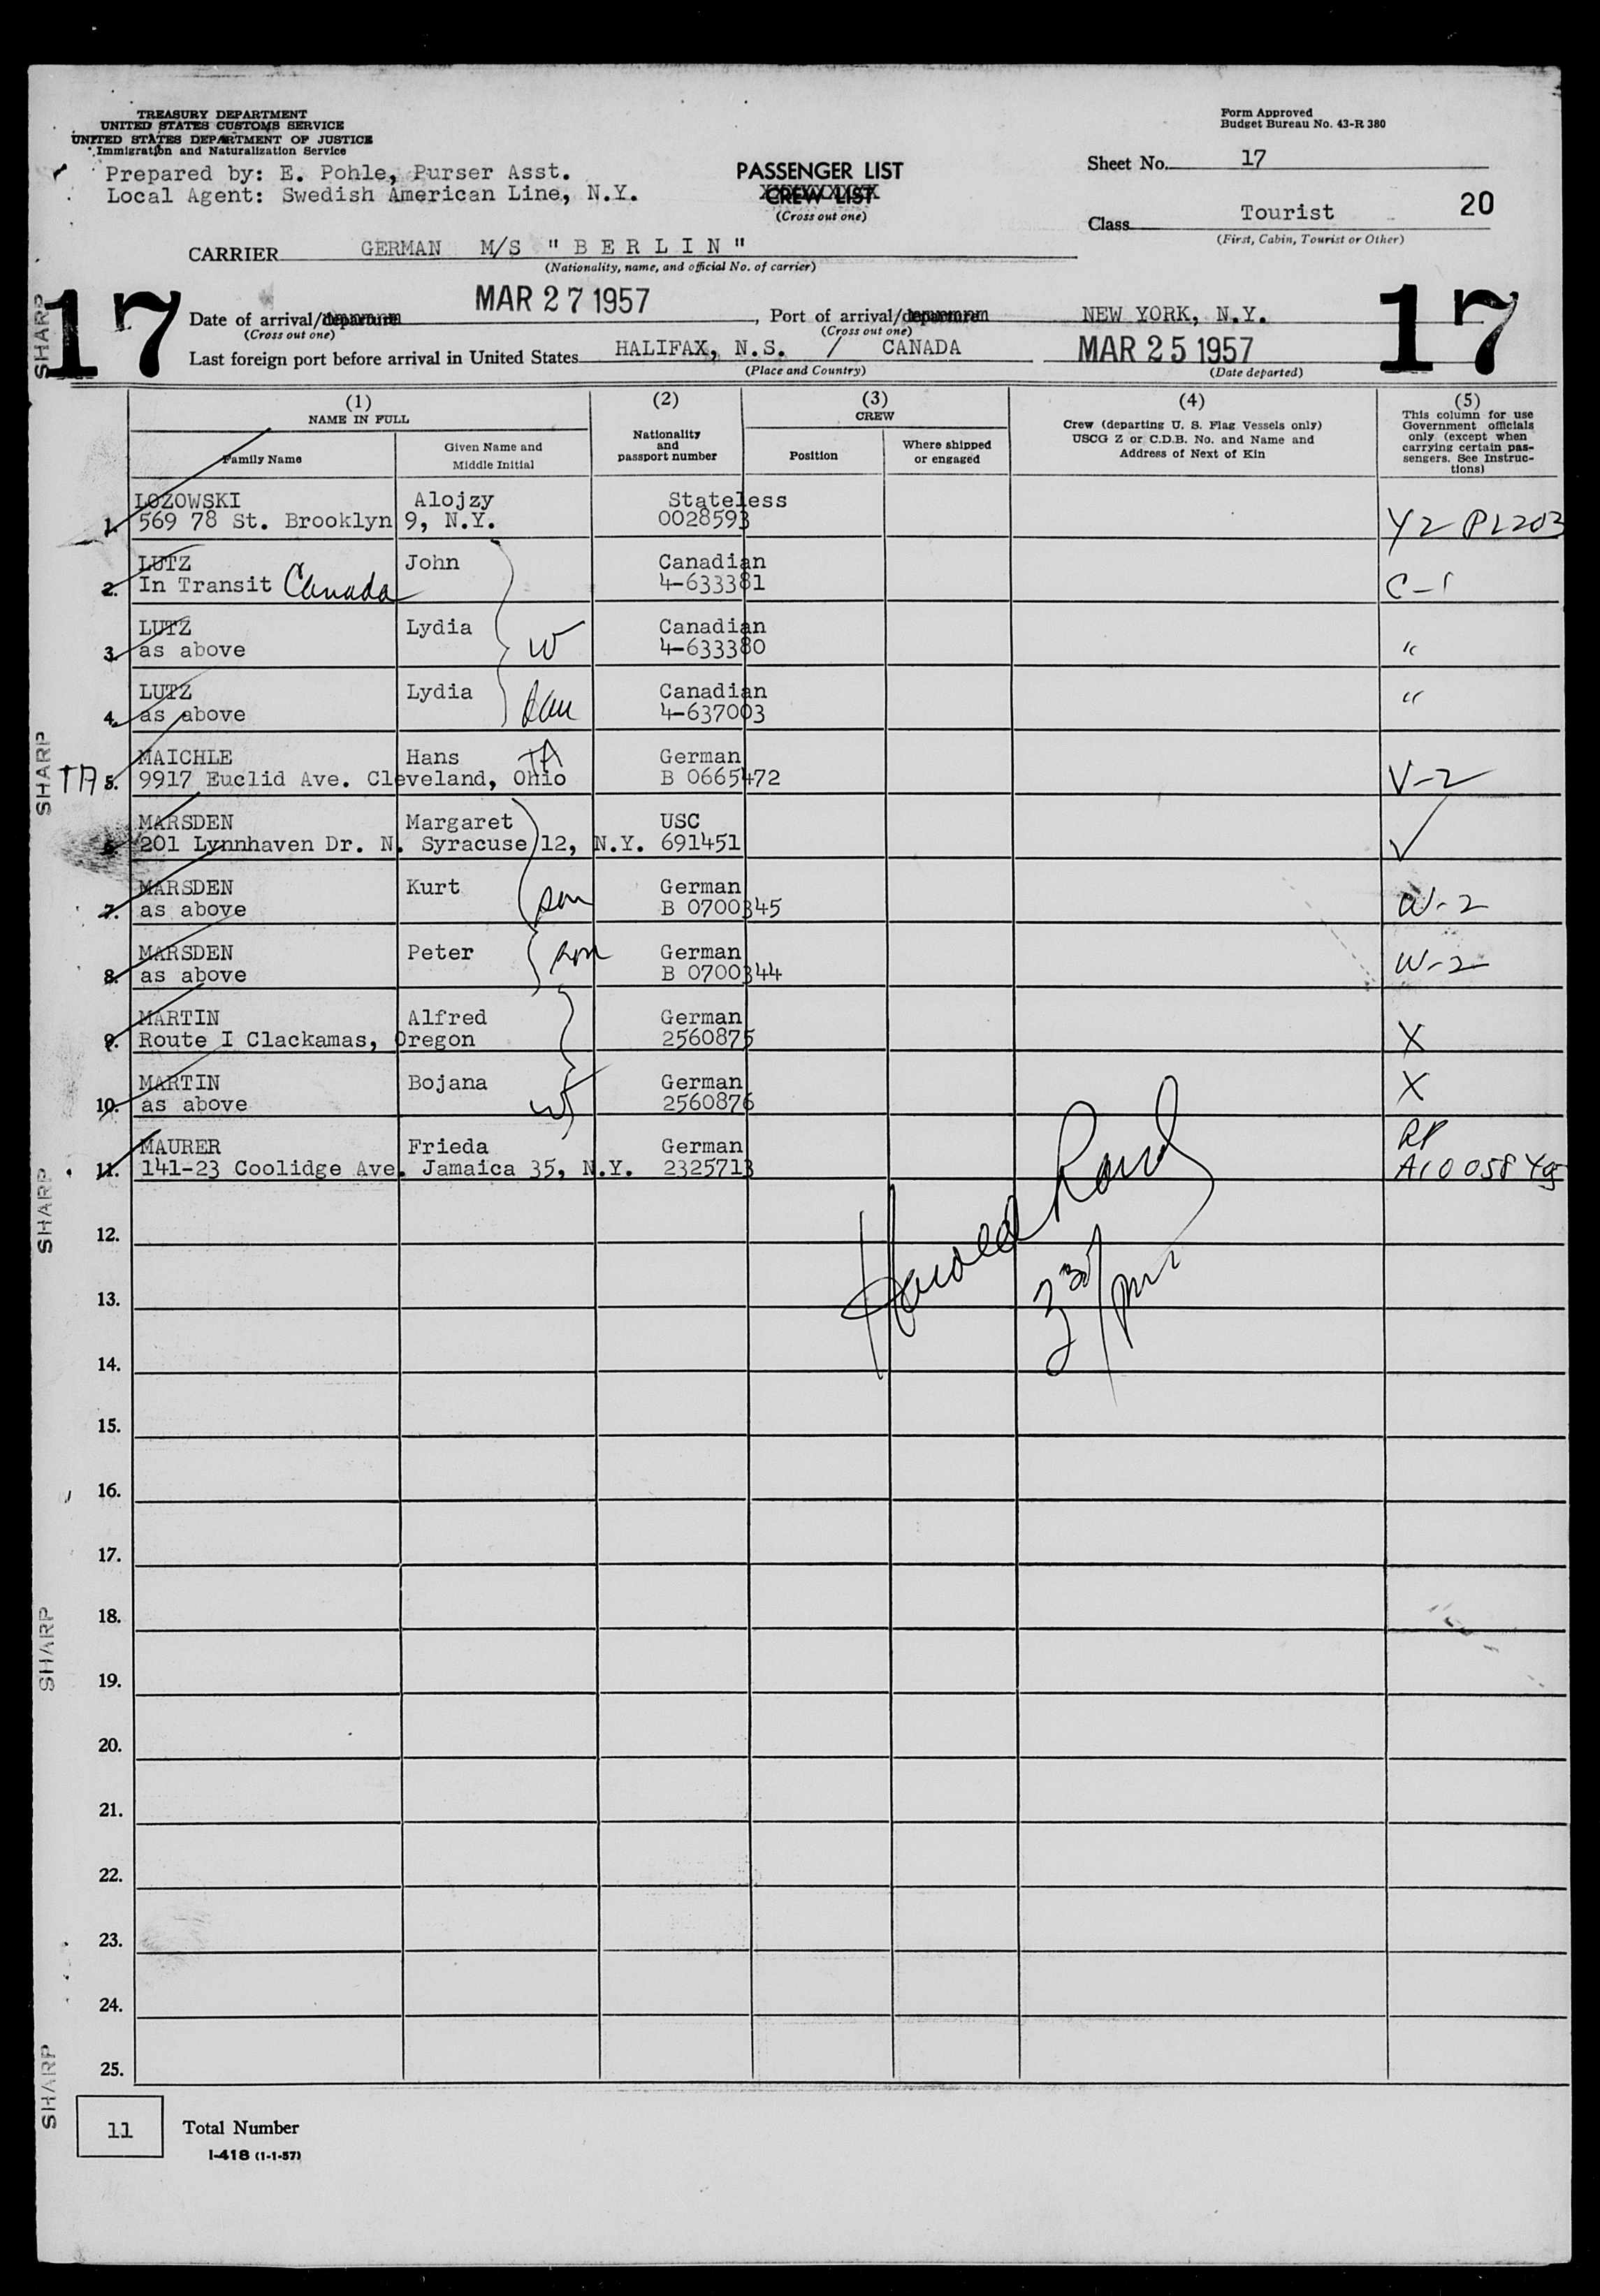 TREASURY DEPARTMENT
UNITED STATES CUSTOMS SERVICE
UNITED STATES DEPARTMENT OF JUSTICE
Immigration and Naturalization Service
Form Approved
Budget Bureau No. 43-R 380
Prepared by: E. Pohle, Purser Asst.
Local Agent: Swedish American Line, N.Y.
PASSENGER LIST
CREW LIST
(Cross out one)
Sheet No. 17
Class Tourist 20
(First, Cabin, Tourist or Other)
CARRIER GERMAN M/S "BERLIN"
(Nationality, name, and official No. of carrier)
17
17
Date of arrival/departure MAR 27 1957, Port of arrival/departure NEW YORK, N.Y.
(Cross out one) (Cross out one)
Last foreign port before arrival in United States HALIFAX, N.S. / CANADA MAR 25 1957
(Place and Country) (Date departed)
(1) NAME IN FULL
Family Name
Given Name and Middle Initial
(2) Nationality and passport number
(3) CREW
Position
Where shipped or engaged
(4)
Crew (departing U. S. Flag Vessels only)
USCG Z or C.D.B. No. and Name and
Address of Next of Kin
(5)
This column for use
Government officials
only (except when
carrying certain pas-
sengers. See Instruc-
tions)
LOZOWSKI Alojzy Stateless
1. 569 78 St. Brooklyn 9, N.Y. 0028593 Y2 PL203
LUTZ John Canadian
2. In Transit Canada 4-633381 C-1
LUTZ Lydia Canadian
3. as above W 4-633380 "
LUTZ Lydia Canadian
4. as above dau 4-637003 "
MAICHLE Hans TA German
TA 5. 9917 Euclid Ave. Cleveland, Ohio B 0665472 V-2
MARSDEN Margaret USC
6. 201 Lynnhaven Dr. N. Syracuse 12, N.Y. 691451 ✓
MARSDEN Kurt German
7. as above son B 0700345 W-2
MARSDEN Peter son German
8. as above B 0700344 W-2
MARTIN Alfred German
9. Route I Clackamas, Oregon 2560875 X
MARTIN Bojana German
10. as above W 2560876 X
MAURER Frieda German RP
11. 141-23 Coolidge Ave. Jamaica 35, N.Y. 2325713
12.
Harold
13.
3 30/pm
14.
15.
16.
17.
18.
19.
20.
21.
22.
23.
24.
25.
11 Total Number
I-418 (1-1-57)
SHARP
SHARP
SHARP
SHARP
SHARP